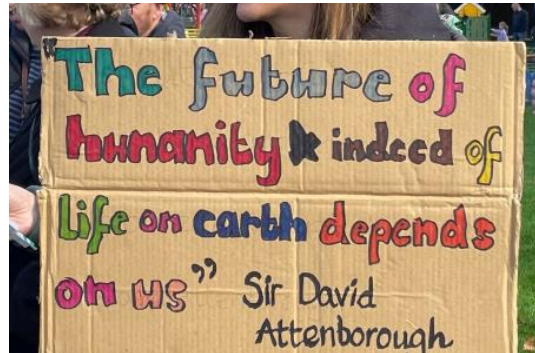 "The future of
humanity & indeed of
life on earth depends
on us" Sir David
Attenborough